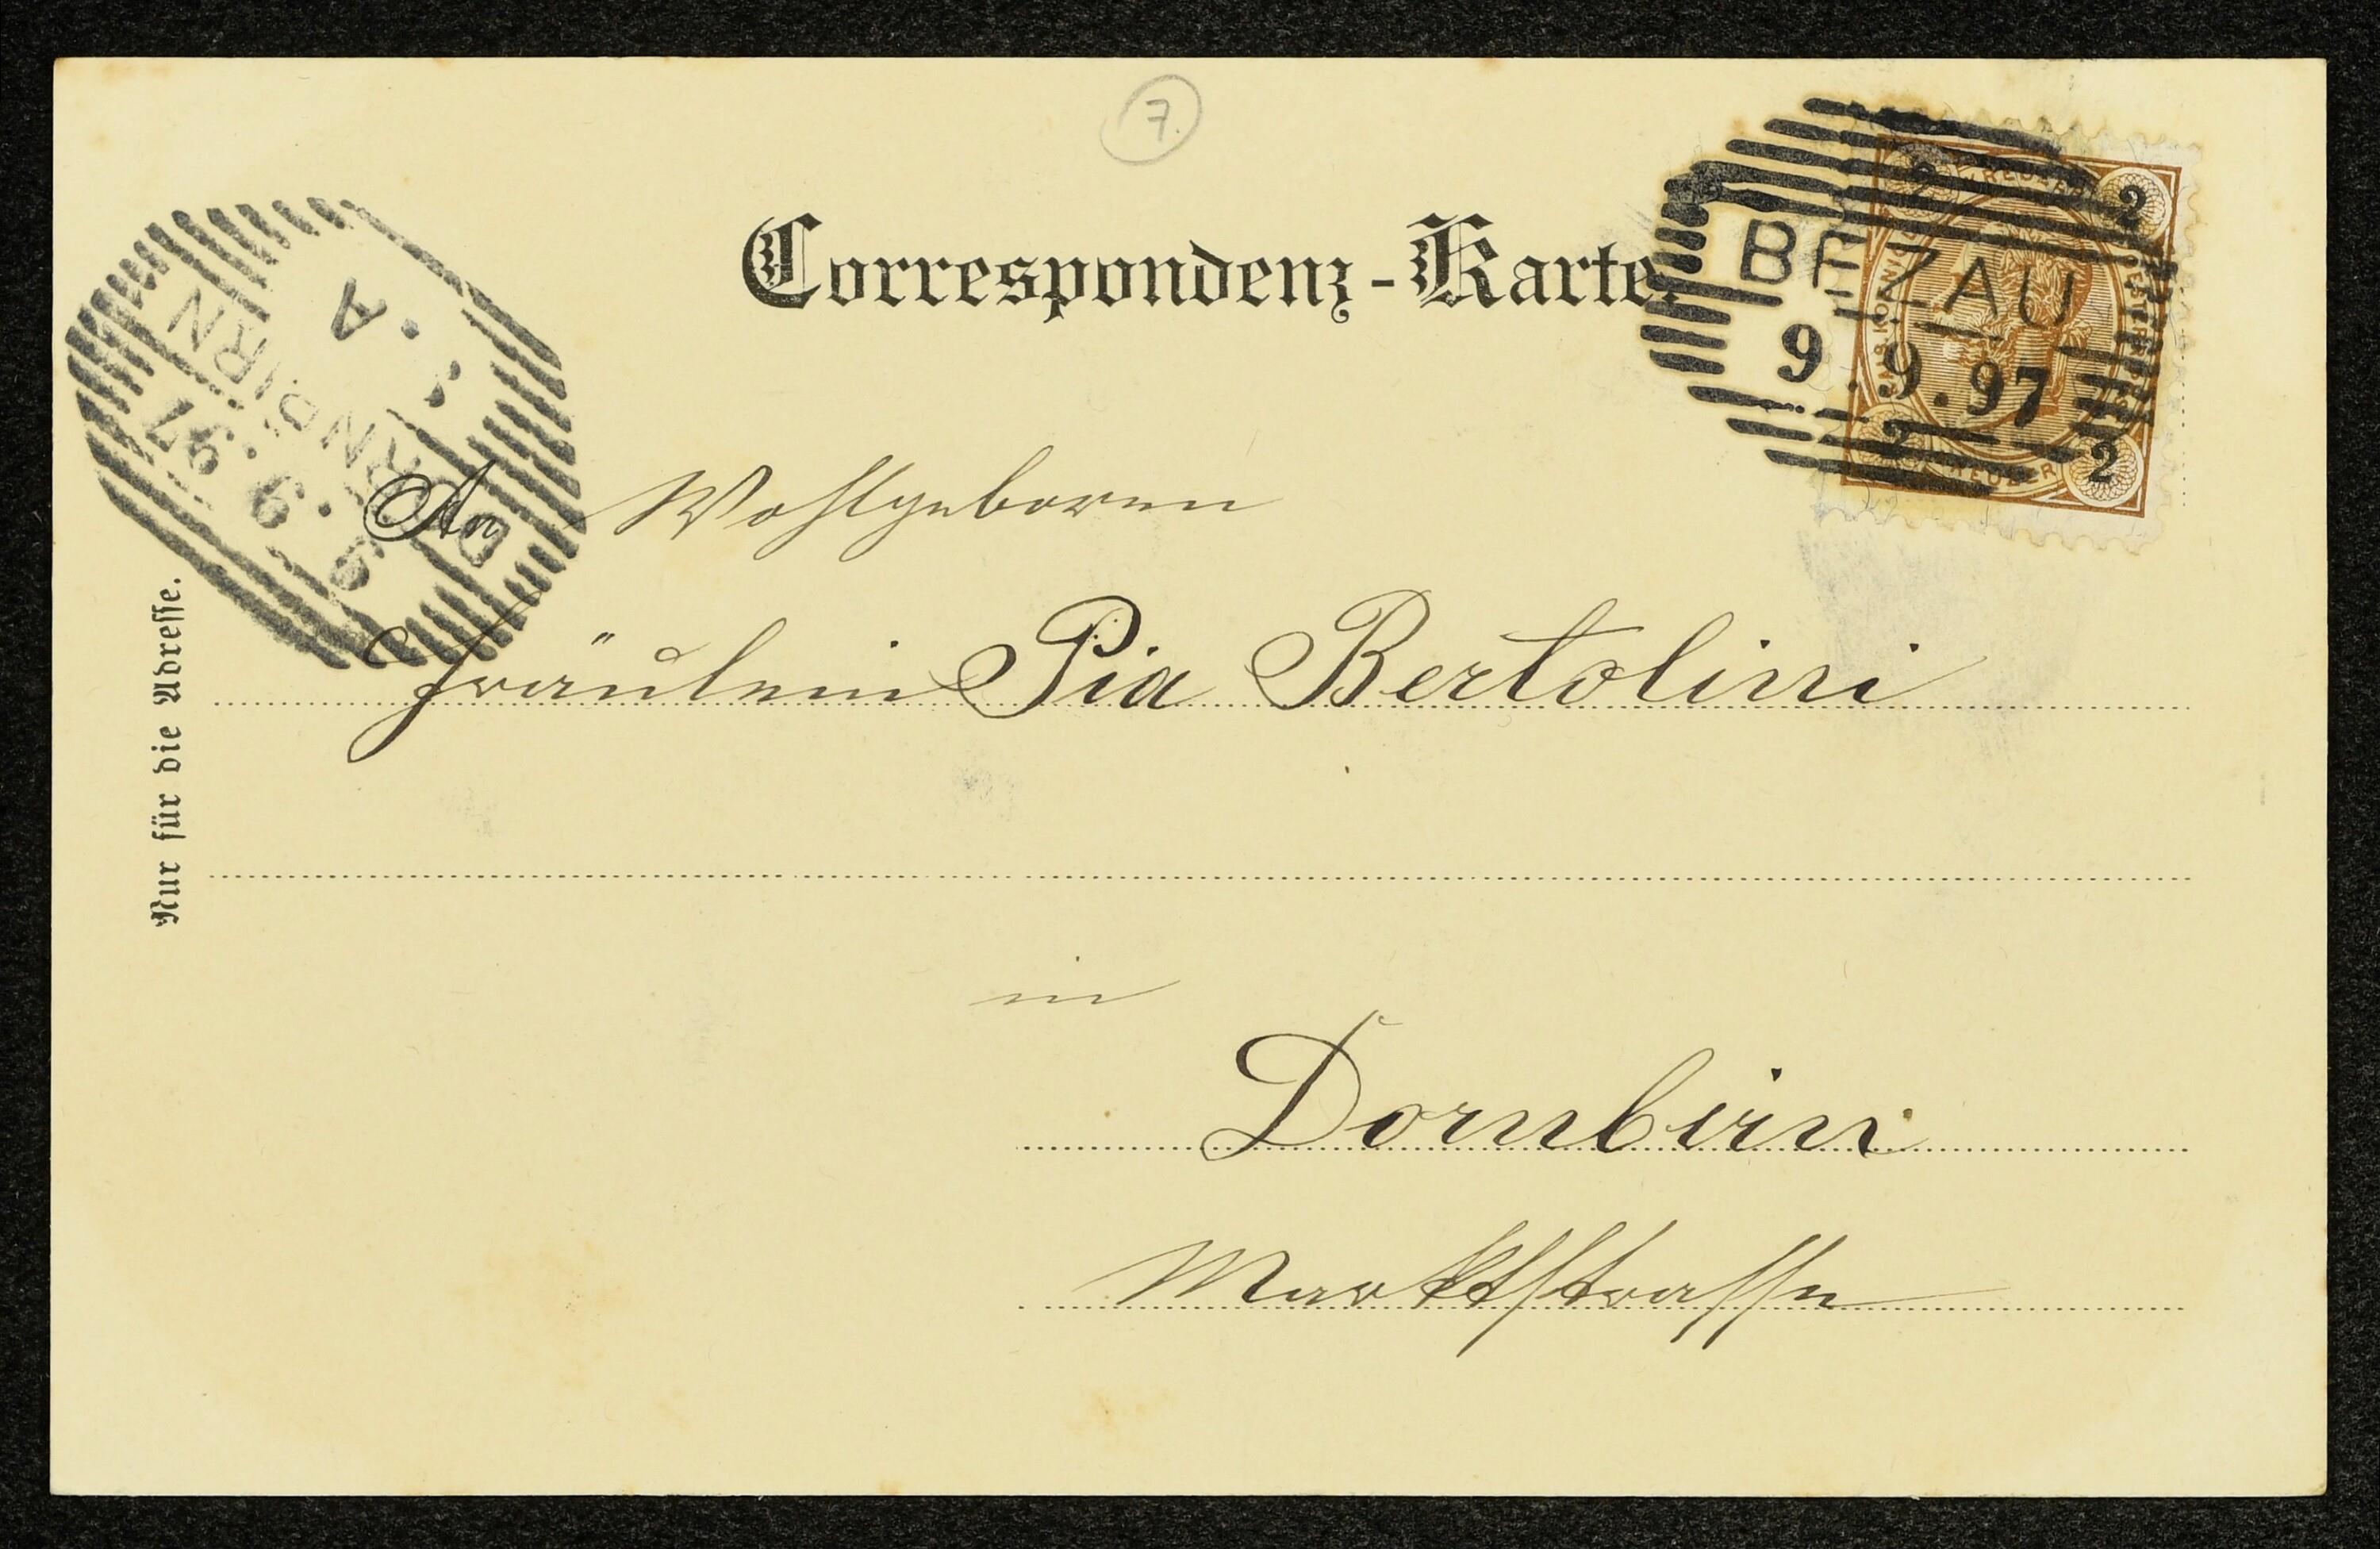 7.
Correspondenz-Karte.
BEZAU
9.9.97
2
2
2
DORNBIRN
9.9.97
A
DORNBIRN
An Wohlgeboren
Fräulein Pia Bertolini
in
Dornbirn
Marktstrasse
Nur für die Adresse.